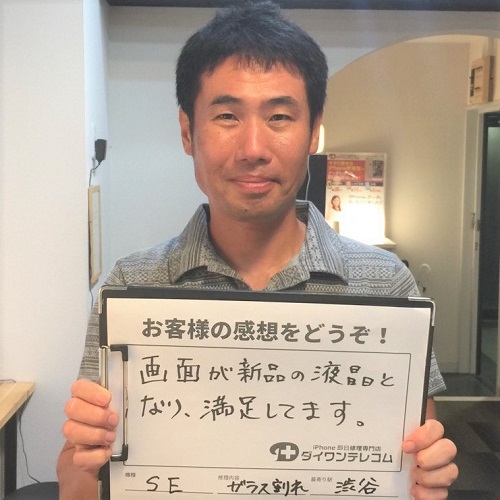 お客様の感想をどうぞ！
画面が新品の液晶と
なり、満足してます。
iPhone 即日修理専門店
ダイワンテレコム
機種 SE 修理内容 ガラス割れ 最寄り駅 渋谷